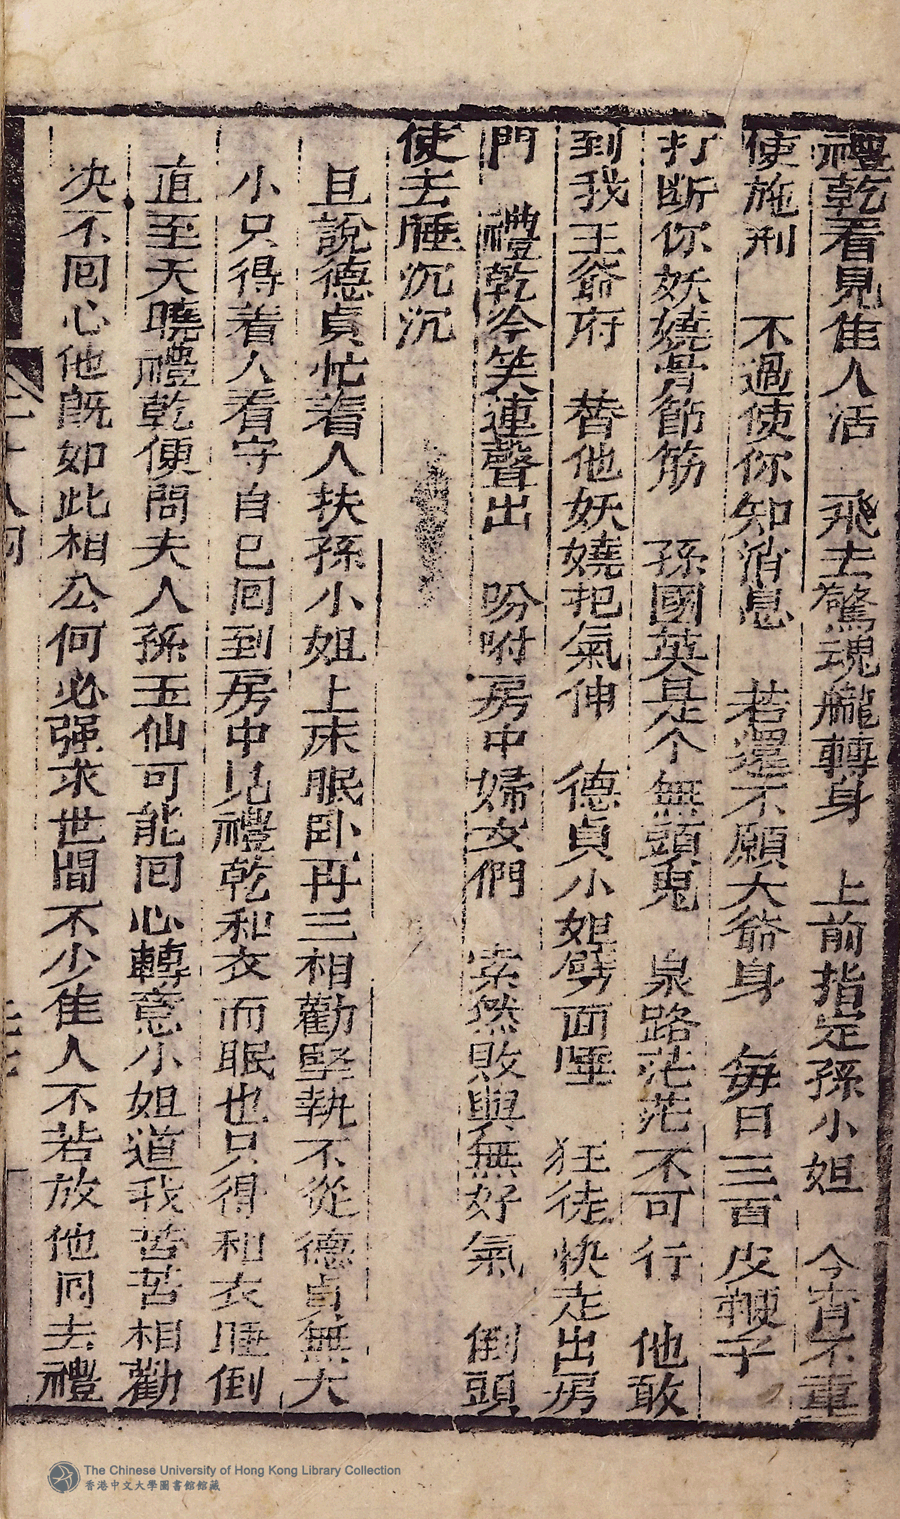 禮乾看見隹人活　飛去驚魂朧轉身　上前指定孫小姐　今宵不重
使施刑　不過使你知消息　若還不願大爺身　每日三百皮鞭子
打斷你妖嬈骨節筋　孫國英是个無頭鬼　泉路茫茫不可行　他敢
到我王爺府　替他妖嬈把氣伸　德貞小姐劈面唾　狂徒快走出房
門　禮乾冷笑連聲出　吩咐房中婦女們　索然敗興無好氣　倒頭
使去睡沉沉
且說德貞忙着人扶孫小姐上床眠卧再三相勸堅執不從德貞無大
小只得着人看守自己回到房中見禮乾和衣而眠也只得和衣睡倒
直至天曉禮乾便問夫人孫玉仙可能回心轉意小姐道我苦苦相勸
决不回心他旣如此相公何必强求世間不少隹人不若放他回去禮
The Chinese University of Hong Kong Library Collection
香港中文大學圖書館館藏